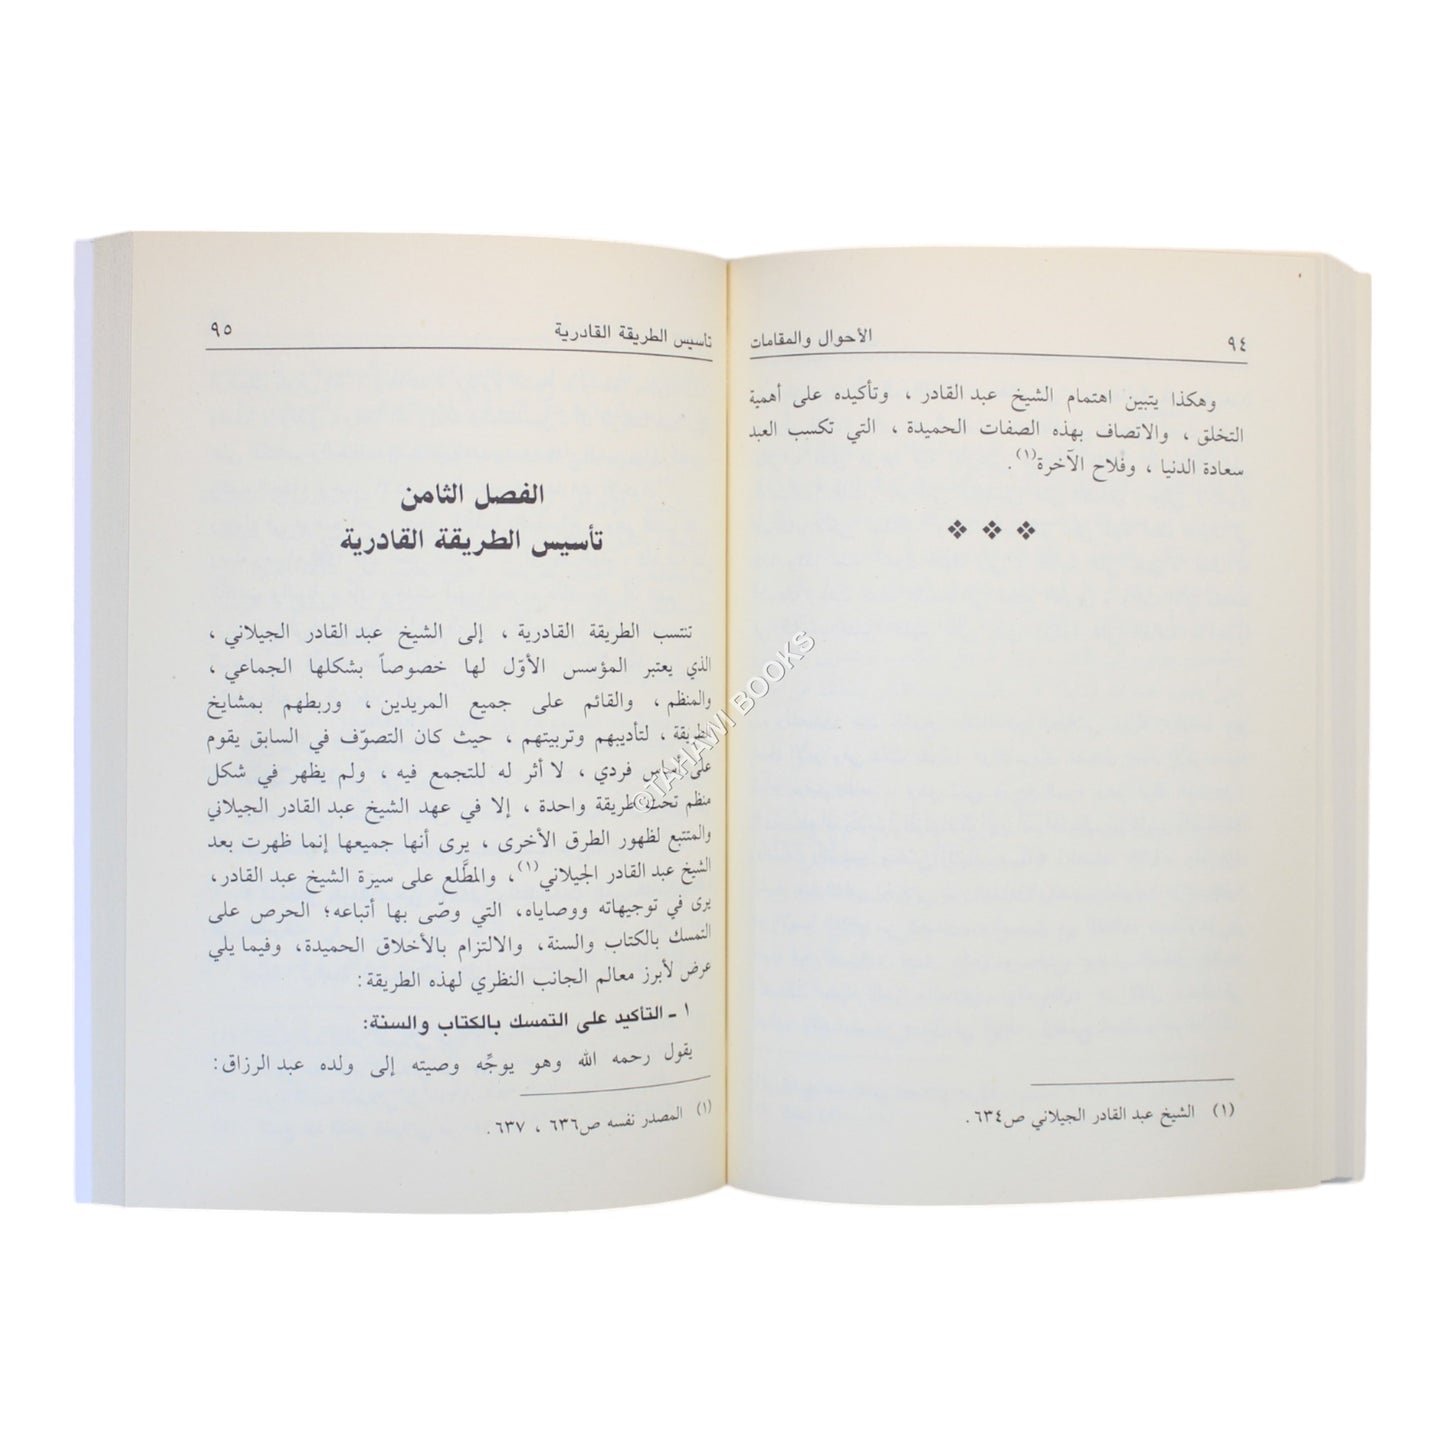 ٩٤
الأحوال والمقامات
وهكذا يتبين اهتمام الشيخ عبد القادر ، وتأكيده على أهمية
التخلق ، والاتصاف بهذه الصفات الحميدة ، التي تكسب العبد
سعادة الدنيا ، وفلاح الآخرة(١).
(١) الشيخ عبد القادر الجيلاني ص٦٣٤ .
تأسيس الطريقة القادرية
٩٥
الفصل الثامن
تأسيس الطريقة القادرية
تنتسب الطريقة القادرية ، إلى الشيخ عبد القادر الجيلاني ،
الذي يعتبر المؤسس الأوّل لها خصوصاً بشكلها الجماعي ،
والمنظم ، والقائم على جميع المريدين ، وربطهم بمشايخ
، لتأديبهم وتربيتهم ، حيث كان التصوّف في السابق يقوم
على فردي ، لا أثر له للتجمع فيه ، ولم يظهر في شكل
منظم تحت طريقة واحدة ، إلا في عهد الشيخ عبد القادر الجيلاني
والمتتبع لظهور الطرق الأخرى ، يرى أنها جميعها إنما ظهرت بعد
الشيخ عبد القادر الجيلاني(١)، والمطَّلع على سيرة الشيخ عبد القادر،
يرى في توجيهاته ووصاياه، التي وصّى بها أتباعه؛ الحرص على
التمسك بالكتاب والسنة، والالتزام بالأخلاق الحميدة، وفيما يلي
عرض لأبرز معالم الجانب النظري لهذه الطريقة:
١ ـ التأكيد على التمسك بالكتاب والسنة:
يقول رحمه الله وهو يوجِّه وصيته إلى ولده عبد الرزاق:
(١) المصدر نفسه ص٦٣٦ ، ٦٣٧ .
©TAHAWI BOOKS